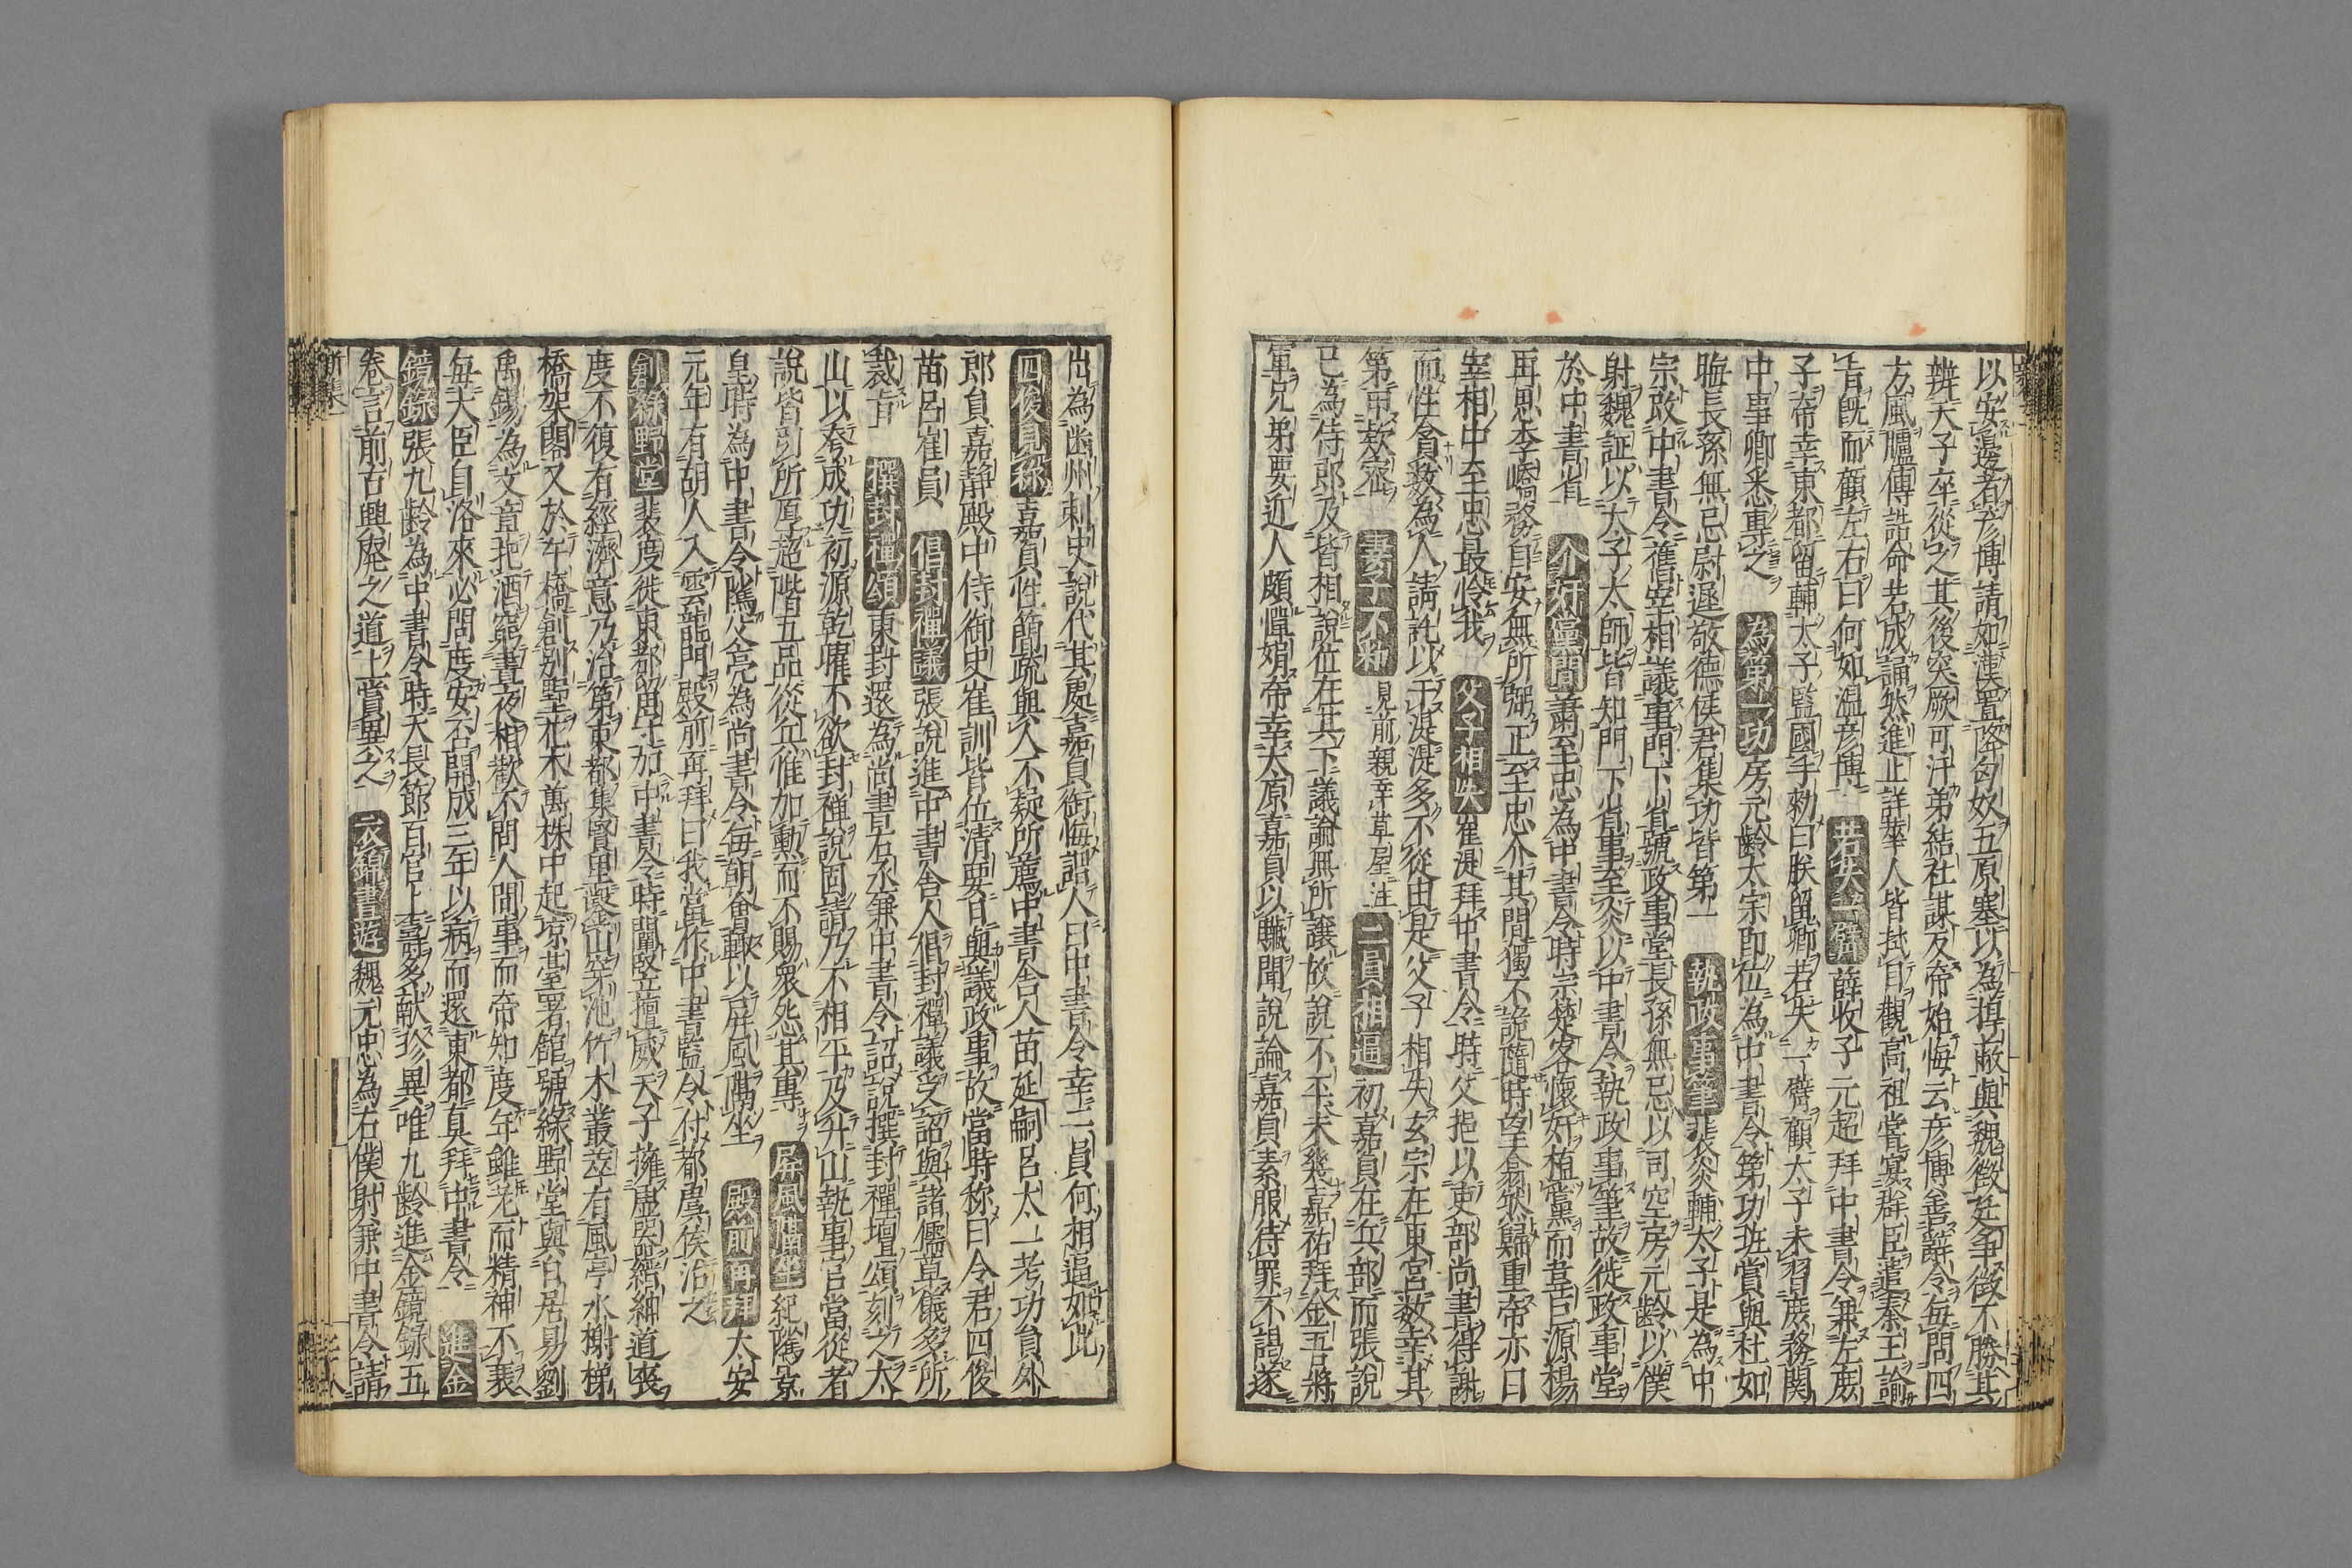 以安邊者彦博請如漢置降匈奴五原塞以為捍蔽與魏徴廷争徴不勝其
辨天子卒從之其後突厥可汗弟結社謀反帝始悔云彦博善辭令毎問四
方風臚傳誥命若成誦然進止詳華人皆拭目觀高祖嘗宴群臣遣秦王諭
旨既而顧左右曰何如温彦博 若失一臂 薛收子元超拜中書令兼左庶
子帝幸東都留輔太子監國手勅曰朕留卿若失一臂顧太子未習庶務関
中事卿悉專之 為第一功 房元齢太宗即位為中書令第功班賞與杜如
晦長孫無忌尉遲敬德侯君集功皆第一 執政事筆 裴炎輔太子是為中
宗改中書令舊宰相議事門下省號政事堂長孫無忌以司空房元齢以僕
射魏証以太子太師皆知門下省事至炎以中書令執政事筆故徙政事堂
於中書省 介奸黨間 蕭至忠為中書令時宗楚客懐奸植黨而韋巨源楊
再思李嶠務自安無所弼正至忠介其間獨不詭隨時望翕然歸重帝亦曰
宰相中至忠最怜我 父子相失 崔湜拜中書令時父挹以吏部尚書得謝
而性貪數為人請託以于湜湜多不從由是父子相失玄宗在東宮数幸其
第申欵密 妻子不粆 見前親幸草屋注 二員相逼 初嘉貞在兵部而張說
已為侍郎及皆相說位在其下議論無所讓故說不平未幾嘉祐拜金吾將
軍兄弟要近人頗憚娟帝幸太原嘉貞以贓聞說諭嘉貞素服待罪不謁遂
出為幽州刺史說代其處嘉貞銜悔謂人曰中書令幸二員何相逼如此
四俊見称 嘉貞性簡䟽與人不疑所薦中書舎人苗延嗣呂太一考功員外
郎員嘉静殿中侍御史崔訓皆位清要日與議政事故當時称曰令君四俊
苗呂崔員 倡封禪議 張說進中書舎人倡封禪議受詔與諸儒草儀多所
裁肯 撰封禪頌 東封還為尚書右丞兼中書令詔說撰封禪壇頌刻之太
山以夸成功初源乾曜不欲封禅說固請乃不相平及升山執事官當從者
說皆引所厚超階五品從兵惟加勲而不賜衆怨其專 屏風隔坐 紀隲景
皇時為中書令隲父亮為尚書令毎朝會輙以屏風隔坐 殿前再拜 太安
元年有胡人入雲龍門殿前再拜曰我當作中書監令付都虞侯治之
創緑野堂 裴度徙東都留守加中書令時閹竪擅威天子擁虚器縉紳道喪
度不復有經濟意乃治第東都集賢里鑿山穿池竹木叢萃有風亭水榭梯
橋架閣又於午橋創別墅花木萬株中起凉臺署館號緑野堂與白居易劉
禹錫為文章把酒窮晝夜相歡不問人間事而帝知度年雖老而精神不衰
毎大臣自洛來必問度安否開成三年以病而還東都真拜中書令 進金
鏡録 張九齢為中書令時天長節百官上壽多献珍異唯九齢進金鏡録五
卷言前古興廃之道上賞異之 衣錦晝遊 魏元忠為右僕射兼中書令請